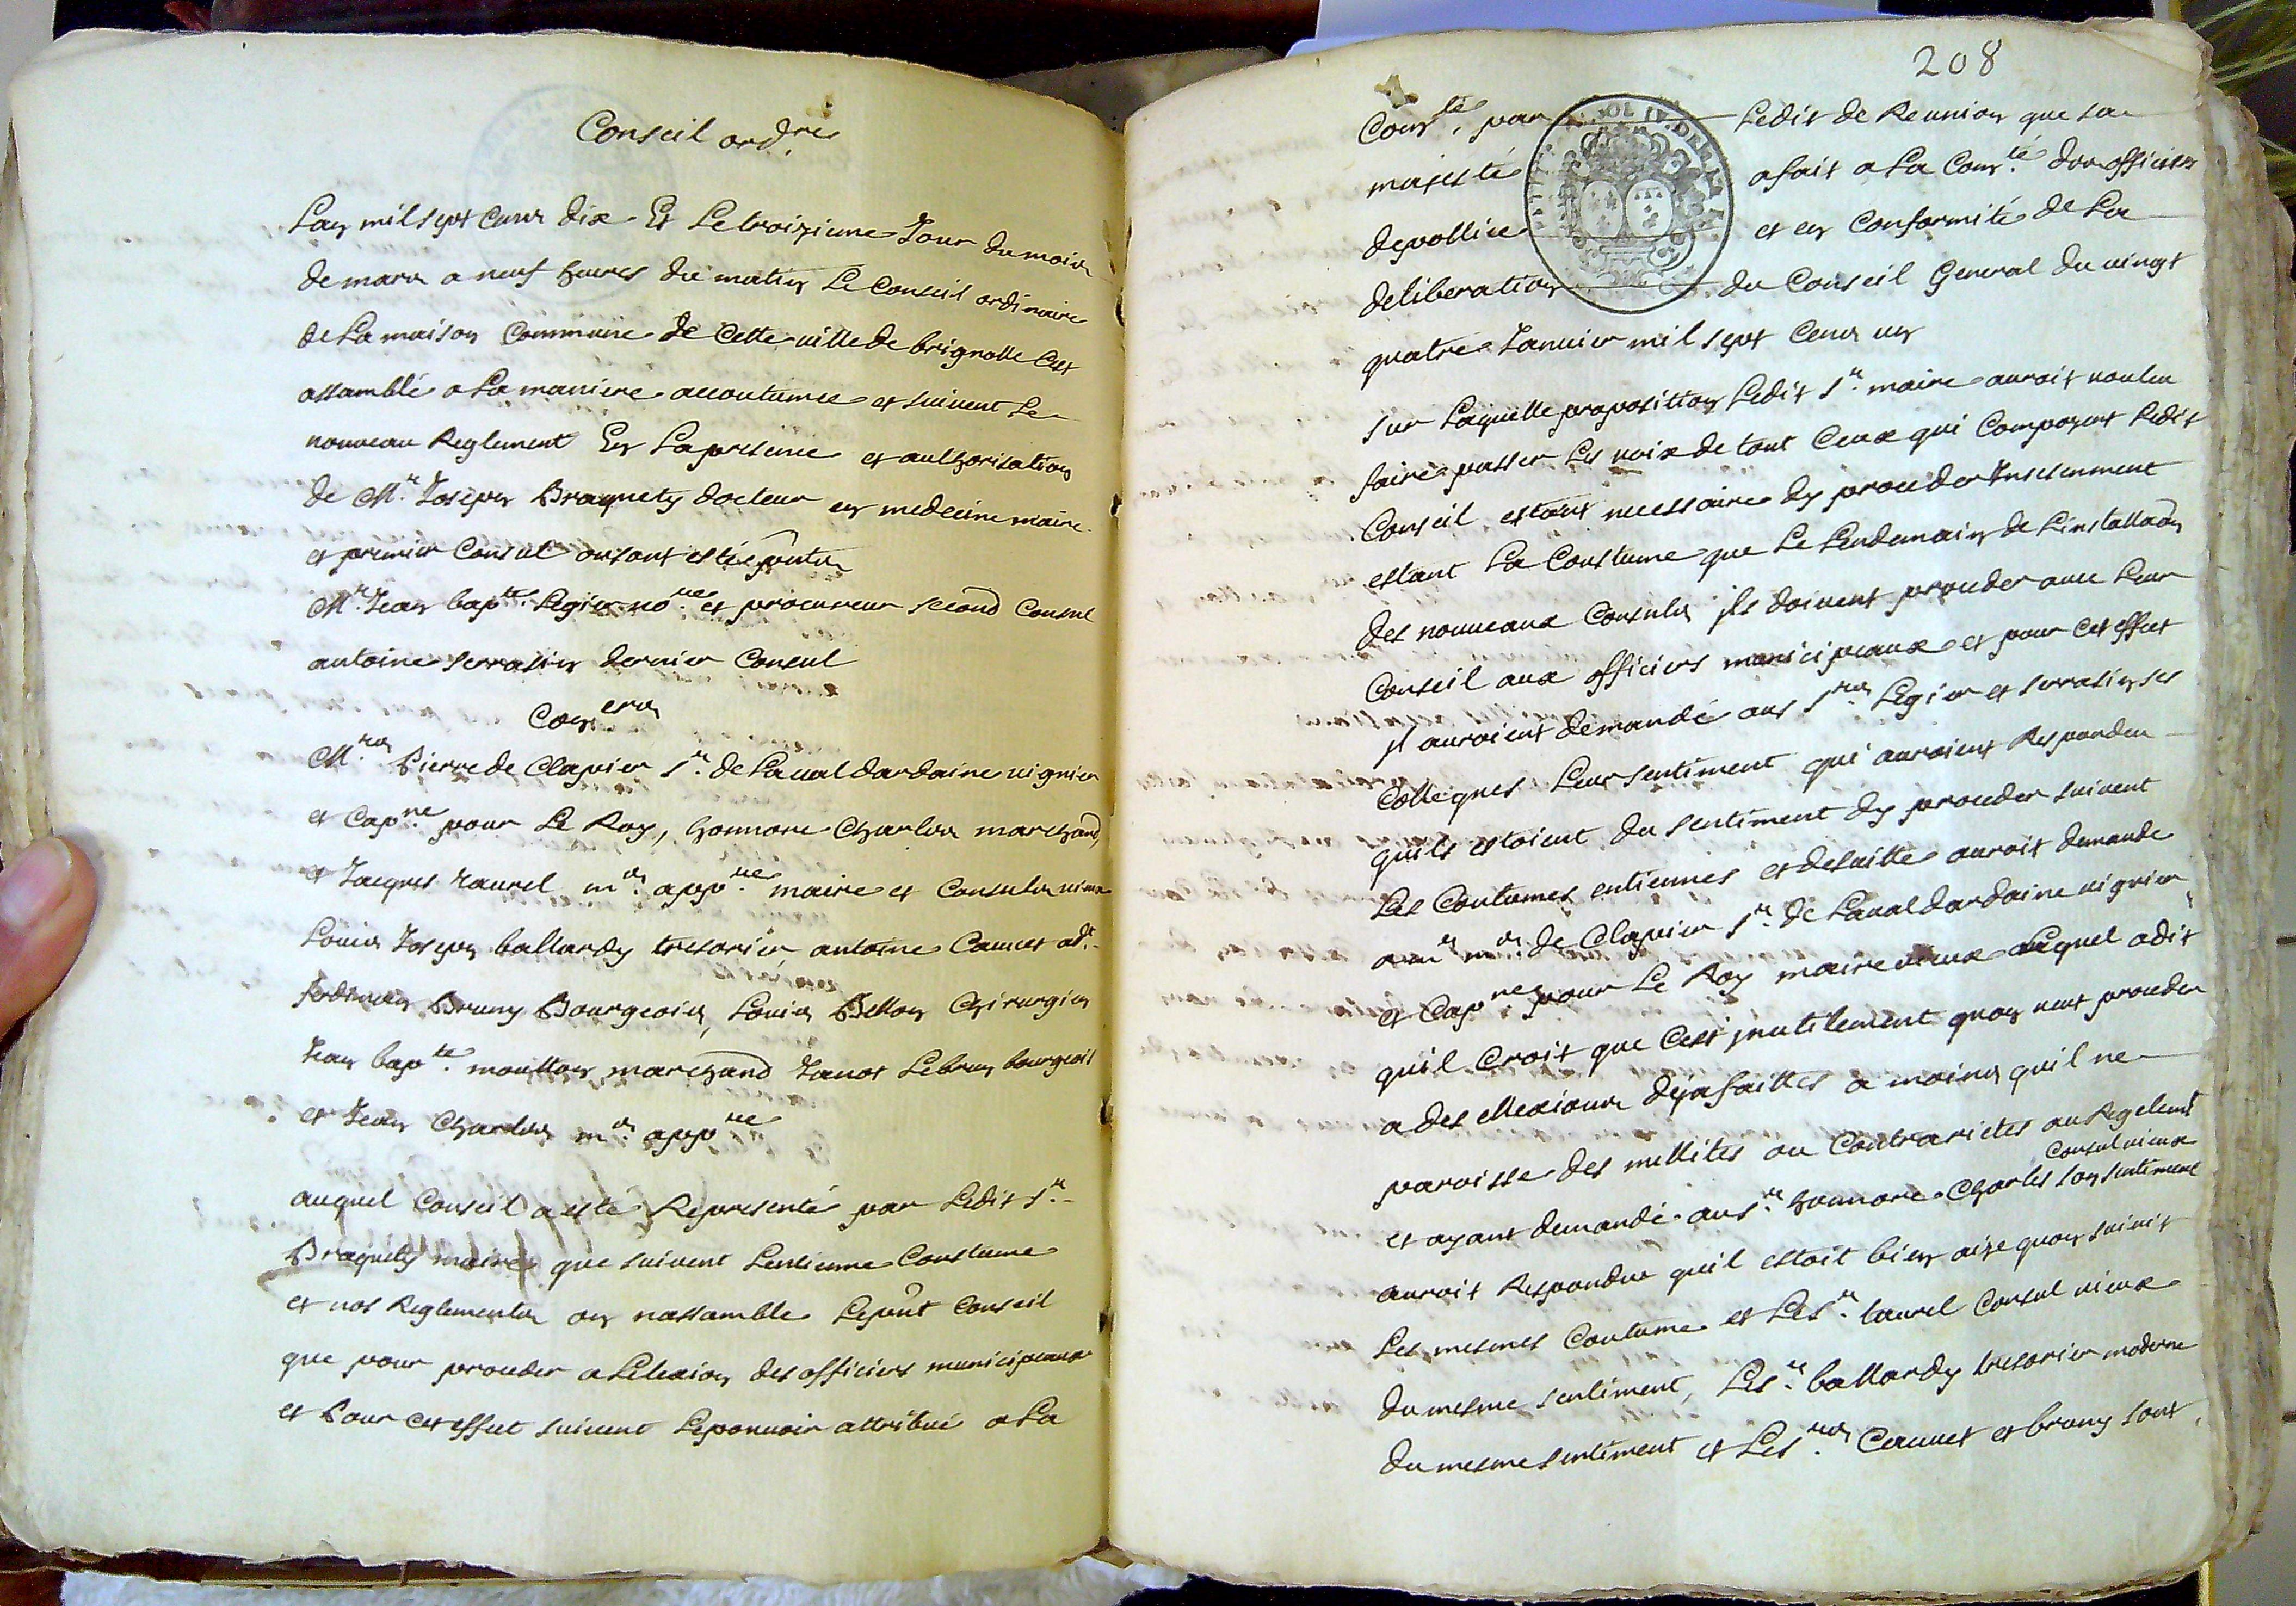 Conseil ord.re
Lan mil sept cens dix Et Le troizieme Jour du mois
de mars a neuf heures du matin Le Conseil ordinaire
de La maison Commune de Cette ville de brignolle Cest
assamblé a La maniere accoutumee et suivent Le
nouveau Reglement En La presence et authorisation
de Mr. Joseph Braquety docteur en medecine maire
et premier Consul ou sont esté pntz
Mr. Jean bapte. Legier no.re et procureur second Consul
antoine serrasin dernier Consul
Con.ers
M.res Pierre de Clapier Sr. de La val dardaine viguier
et Cap.ne pour Le Roy, honnore Charles marchand,
et Jacques taurel m.e app.re maire et Consuls vieux
Louis Joseph ballardy tresorier, antoine Cannet adt.
Bruny Bourgeois, Louis Bellon Chirurgien
Jean bap.te moutton marchand Janot Lebrun bourgeois
et Jean Charles m.e app.re
auquel Conseil a esté Representé par Ledit Sr.
Braquety maire que suivent Lentienne Coustume
et nos Reglements on nassamble Le pnt Conseil
que pour proceder a Lelexion des officiers municipaux
et Pour cet effect suivent Le pouvoir attribué a La
208
Com.té, par Ledit de Reunion que sa
majesté a fait a La Com.té des officiers
de pollice et en Conformité de La
deliberation du Conseil General du vingt
quatre Janvier mil sept Cens un
sur Laquelle proposition Ledit Sr. maire auroit voulu
faire passer Les voix de tout Ceux qui Composent Ledit
Conseil estant necessaire dy proceder Insesemment
estant La Coustume que Le Lendemain de Linstallaon
des nouveaux Consuls jls doivent proceder avec Leur
Conseil aux officiers municipeaux et pour cet effect
jl auroient demandé aus Srs. Legier et serrasin ses
Collegues Leur sentiment qui auroient Respondeu
quils estoient du sentiment dy proceder suivent
Les Coutumes entiennes et desuitte auroit demande
a m.r m.e de Clapier Sr. de Laval dardaine viguier
et Cap.ne pour Le Roy maire vieux Lequel a dit
quil Croit que Cest jnutilement quon veut proceder
a des ellexions deja faittes a moins quil ne
paroisse des nullites ou Contrarietes au Reglemt
et ayant demandé au Sr. honnore Charles Consul vieux son sentiment
auroit Respondeu quil estoit bien aize quon suivit
Les mesmes Coutume et Le Sr. taurel Consul vieux
du mesme sentiment, Le Sr. ballardy tresorier moderne
du mesme sentiment et Les Srs. Cannet et bruny sont